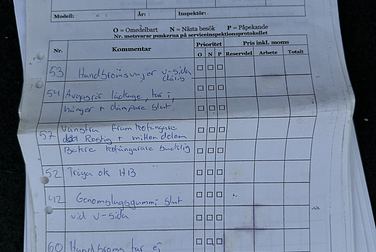 Modell: År: Inspektör:
O = Omedelbart N = Nästa besök P = Påpekande
Nr. motsvarar punkerna på serviceinspektionsprotokollet
Nr. Kommentar Prioritet Pris inkl. moms
O N P Reservdel Arbete Totalt
53 Handbromsvajer v-sida
dålig
54 Avgasrör läckage
hänger + dämpare slut
57 Vänstra Framkotångare
Rostig + mittendelen
Bättre
52 Tröga ok HB
42 Genomslagsgummi slut
vid v-sida
60 Handbroms tar ej